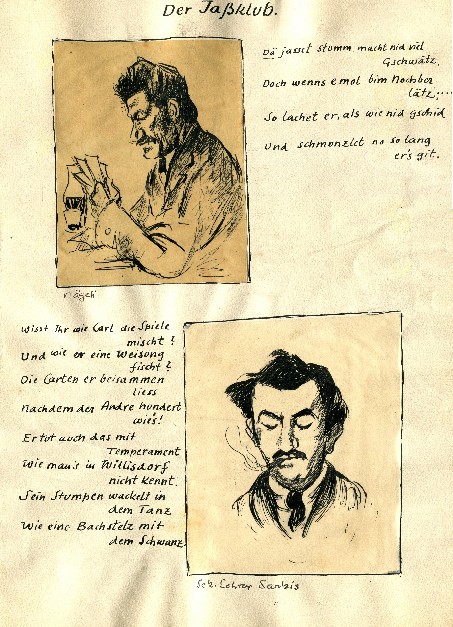 Der Jaßklub.
Dä jasset stumm, macht nid viel
Gschwätz,
Doch wenns emol bim Nochber
lätz,....
So lachet er, als wie nid gschid
Und schmonzlet no so lang
er's git.
Wisst Ihr wie Carl die Spiele
mischt?
Und wie er eine Weisung
fischt?
Die Carten er beisammen
liess
Nachdem der Andre hundert
wies!
Er tut auch das mit
Temperament
Wie man's in Willisdorf
nicht kennt.
Sein Stumpen wackelt in
dem Tanz
Wie eine Bachstelz mit
dem Schwanz
Sek. Lehrer